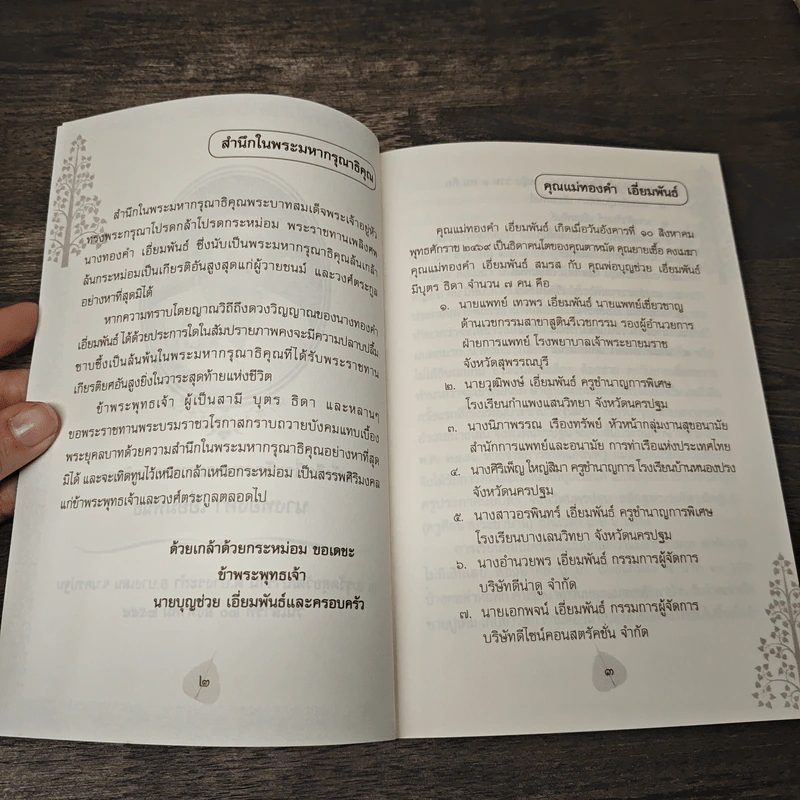 สำนึกในพระมหากรุณาธิคุณ
สำนึกในพระมหากรุณาธิคุณพระบาทสมเด็จพระเจ้าอยู่หัว
ทรงพระกรุณาโปรดเกล้าโปรดกระหม่อม พระราชทานเพลิงศพ
นางทองคำ เอี่ยมพันธ์ ซึ่งนับเป็นพระมหากรุณาธิคุณล้นเกล้า
ล้นกระหม่อมเป็นเกียรติอันสูงสุดแก่ผู้วายชนม์ และวงศ์ตระกูล
อย่างหาที่สุดมิได้
หากความทราบโดยญาณวิถีถึงดวงวิญญาณของนางทองคำ
เอี่ยมพันธ์ ได้ด้วยประการใดในสัมปรายภาพคงจะมีความปลาบปลื้ม
ซาบซึ้งเป็นล้นพ้นในพระมหากรุณาธิคุณที่ได้รับพระราชทาน
เกียรติยศอันสูงยิ่งในวาระสุดท้ายแห่งชีวิต
ข้าพระพุทธเจ้า ผู้เป็นสามี บุตร ธิดา และหลานๆ
ขอพระราชทานพระบรมราชวโรกาสกราบถวายบังคมแทบเบื้อง
พระยุคลบาทด้วยความสำนึกในพระมหากรุณาธิคุณอย่างหาที่สุด
มิได้ และจะเทิดทูนไว้เหนือเกล้าเหนือกระหม่อม เป็นสรรพศิริมงคล
แก่ข้าพระพุทธเจ้าและวงศ์ตระกูลตลอดไป
ด้วยเกล้าด้วยกระหม่อม ขอเดชะ
ข้าพระพุทธเจ้า
นายบุญช่วย เอี่ยมพันธ์และครอบครัว
๒
คุณแม่ทองคำ เอี่ยมพันธ์
คุณแม่ทองคำ เอี่ยมพันธ์ เกิดเมื่อวันอังคารที่ ๑๐ สิงหาคม
พุทธศักราช ๒๔๖๙ เป็นธิดาคนโตของคุณตาหมัด คุณยายเชื้อ คงเมฆา
คุณแม่ทองคำ เอี่ยมพันธ์ สมรส กับ คุณพ่อบุญช่วย เอี่ยมพันธ์
มีบุตร ธิดา จำนวน ๗ คน คือ
๑. นายแพทย์ เทวพร เอี่ยมพันธ์ นายแพทย์เชี่ยวชาญ
ด้านเวชกรรมสาขาสูตินรีเวชกรรม รองผู้อำนวยการ
ฝ่ายการแพทย์ โรงพยาบาลเจ้าพระยายมราช
จังหวัดสุพรรณบุรี
๒. นายวุฒิพงษ์ เอี่ยมพันธ์ ครูชำนาญการพิเศษ
โรงเรียนกำแพงแสนวิทยา จังหวัดนครปฐม
๓. นางนิภาพรรณ เรืองทรัพย์ หัวหน้ากลุ่มงานสุขอนามัย
สำนักการแพทย์และอนามัย การท่าเรือแห่งประเทศไทย
๔. นางศิริเพ็ญ ใหญ่สีมา ครูชำนาญการ โรงเรียนบ้านหนองปรง
จังหวัดนครปฐม
๕. นางสาวอรพินทร์ เอี่ยมพันธ์ ครูชำนาญการพิเศษ
โรงเรียนบางเลนวิทยา จังหวัดนครปฐม
๖. นางอำนวยพร เอี่ยมพันธ์ กรรมการผู้จัดการ
บริษัทดีน่าดู จำกัด
๗. นายเอกพจน์ เอี่ยมพันธ์ กรรมการผู้จัดการ
บริษัทดีไซน์คอนสตรัคชั่น จำกัด
๓